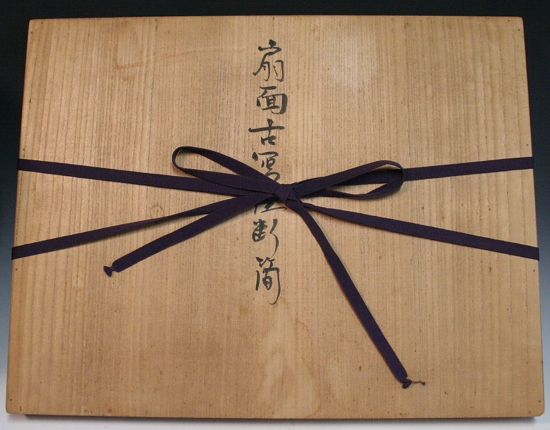 扇面古写経断簡